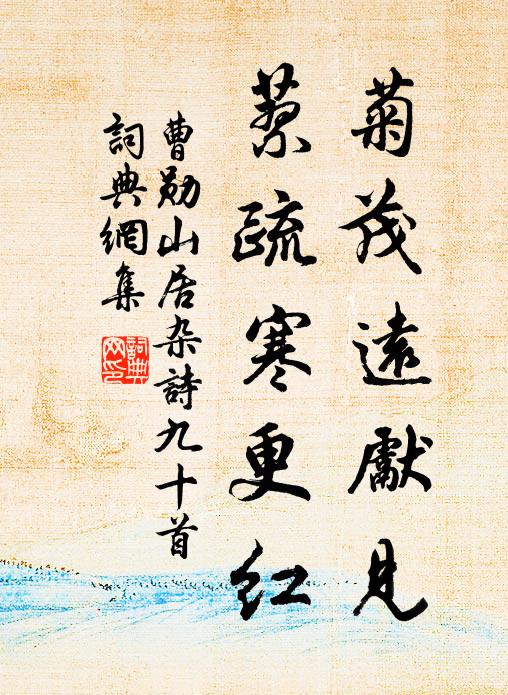 菊茂遠獻見
蔡疏寒更红
曹勋山居杂詩九十首
詞典網集
詞典网印